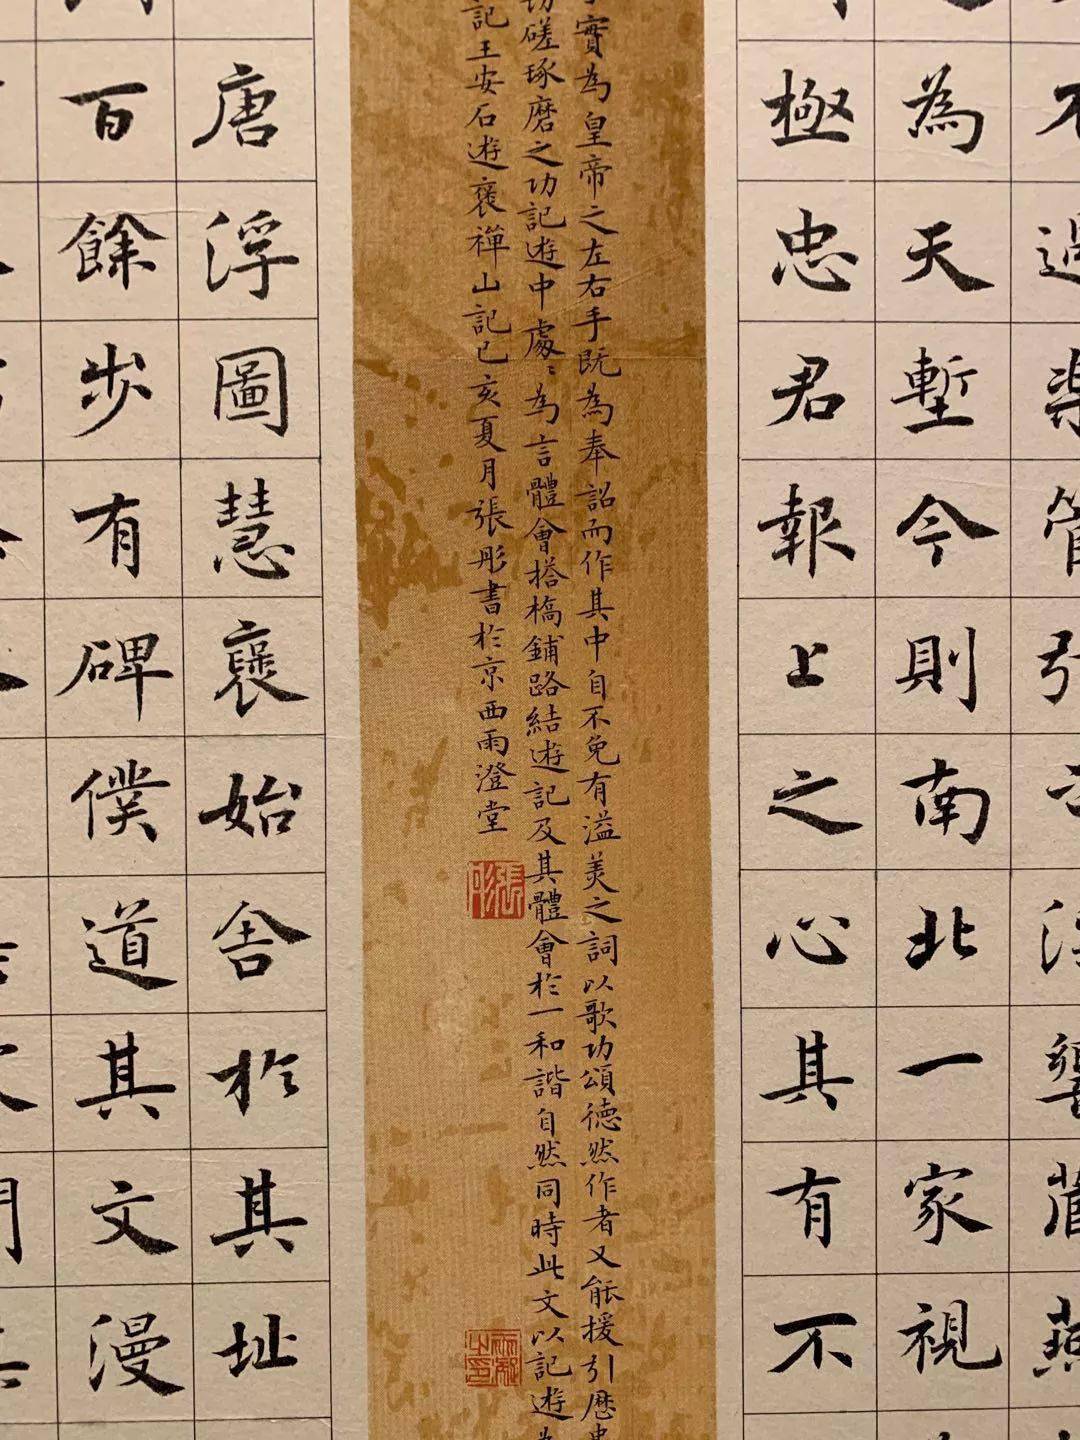 不過樂管
為天塹今則南北一家視
極忠君報上之心其有不
實為皇帝之左右手既為奉詔而作其中自不免有溢美之詞以歌功頌德然作者又能援引歷
切磋琢磨之功記遊中處〻為言體會搭橋鋪路結遊記及其體會於一和諧自然同時此文以記遊為
記王安石遊褒禪山記已亥夏月張彤書於京西雨澄堂
張彤
唐浮圖慧褒始舍於其址
百餘步有碑僕道其文漫